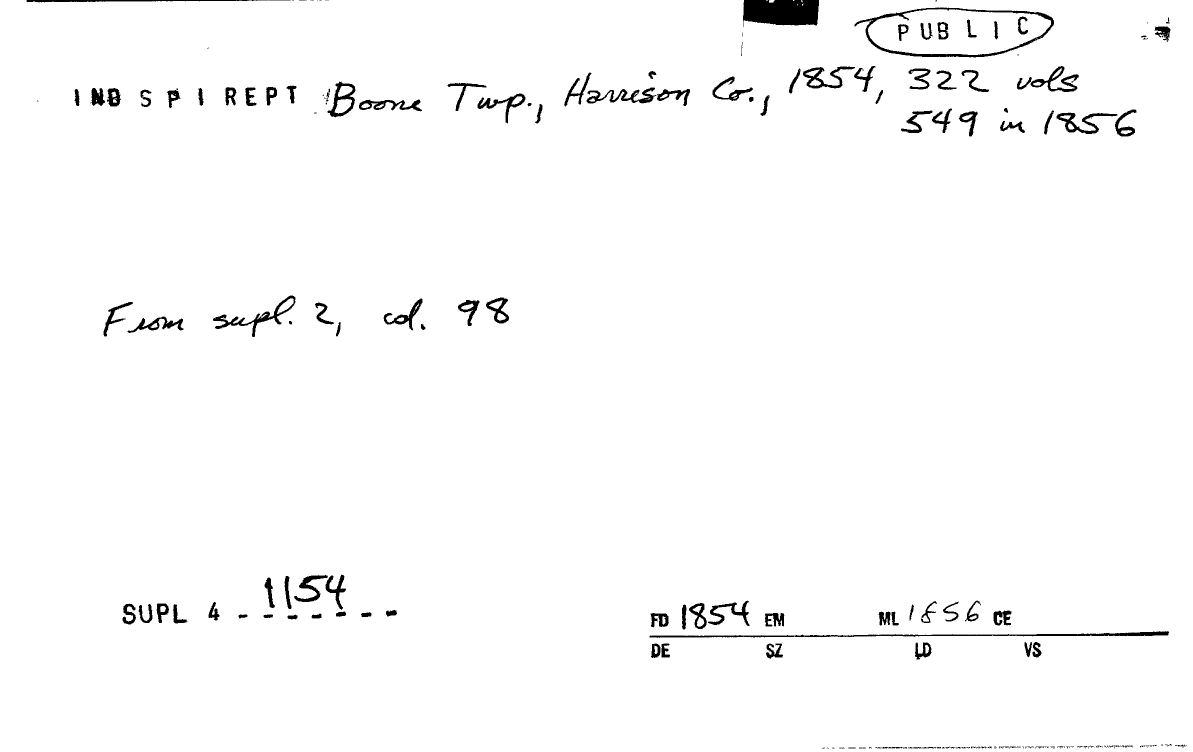 PUBLIC
IND SPI REPT Boone Twp., Harrison Co., 1854, 322 vols
549 in 1856
From supl. 2, col. 98
SUPL 4 - 1154 - -
FD 1854 EM ML 1856 CE
DE SZ LD VS